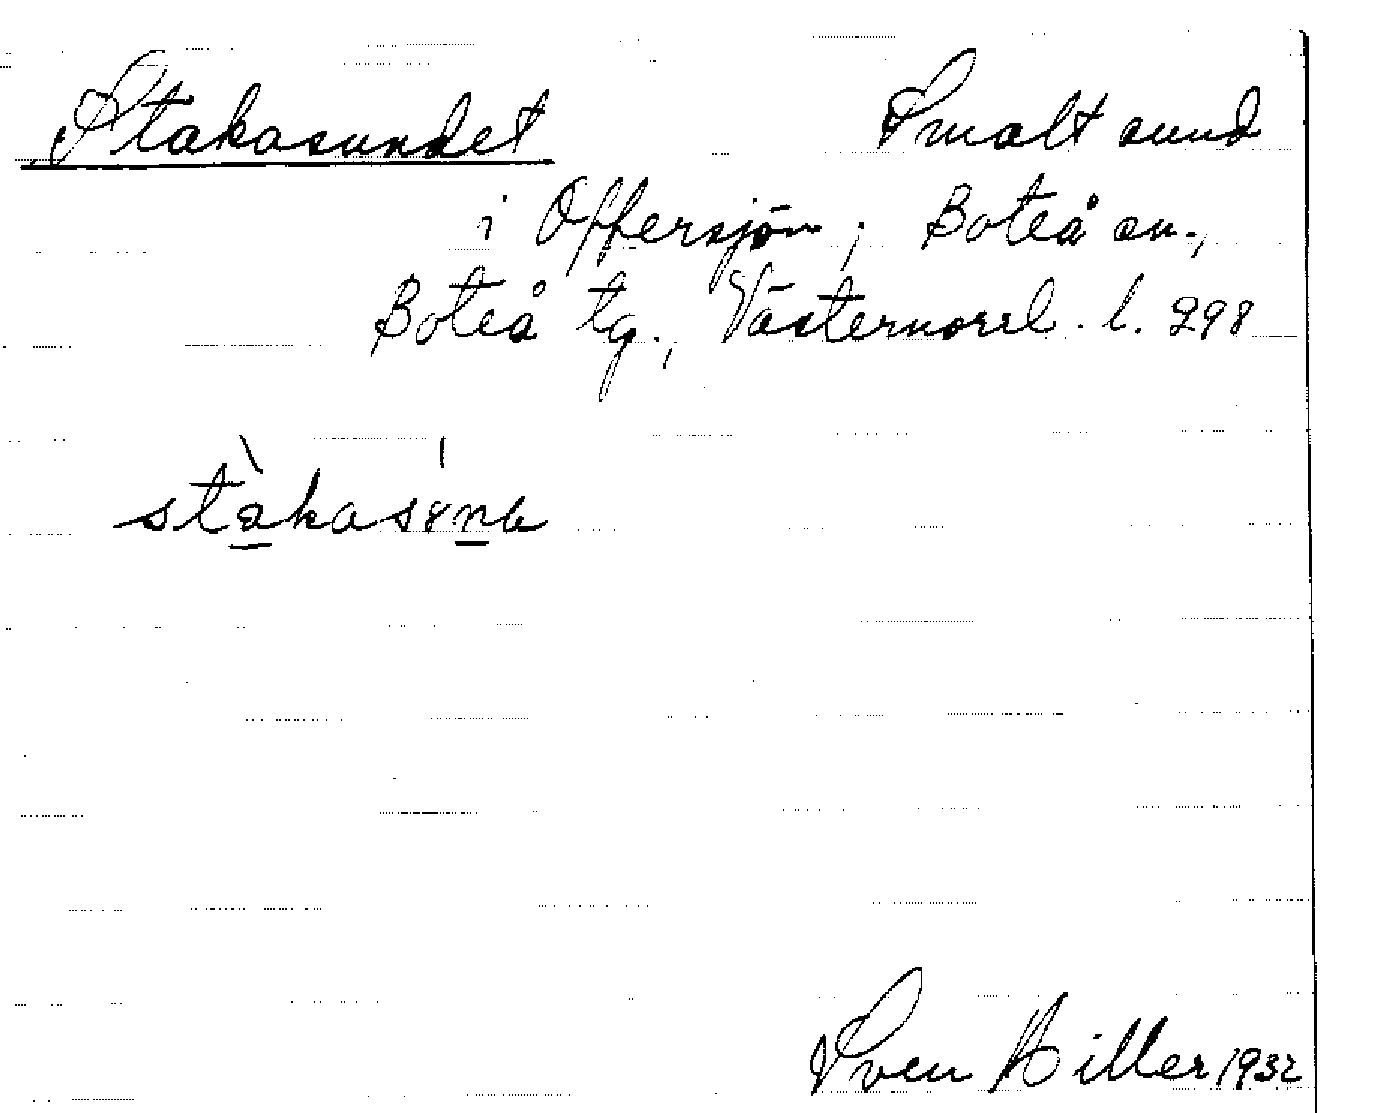 Stakasundet Smalt sund
i Offersjön, Boteå sn.,
Boteå tg., Västernorrl. l. 298
Sven Hiller 1932